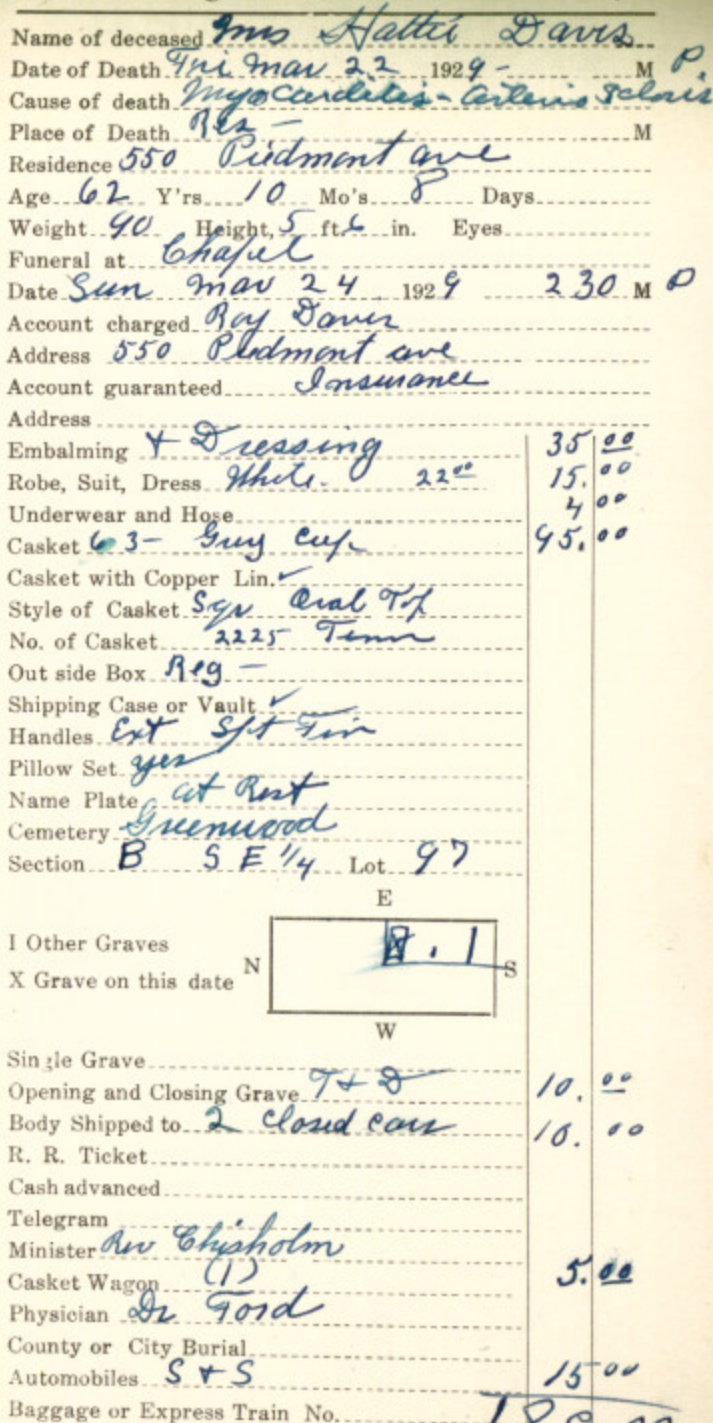 Name of deceased Mrs Hattie Davis
Date of Death Fri Mar 22 1929 - M P
Cause of death Myocarditis - Arterio Scloris
Place of Death Res - M
Residence 550 Piedmont ave
Age 62 Y'rs 10 Mo's 8 Days
Weight 90 Height, 5 ft. 6 in. Eyes
Funeral at Chapel
Date Sun Mar 24 1929 2 30 M P
Account charged Roy Davis
Address 550 Piedmont ave
Account guaranteed Insurance
Address
Embalming + Dressing 35 00
Robe, Suit, Dress White - 22 00 15. 00
Underwear and Hose 4 00
Casket 6 3 - Grey Crep 95. 00
Casket with Copper Lin. ✓
Style of Casket Sqr Oval Top
No. of Casket 2225 Tenn
Out side Box Reg -
Shipping Case or Vault ✓
Handles Ext
Pillow Set yes
Name Plate at Rest
Cemetery Greenwood
Section B S E 1/4 Lot 97
E
I Other Graves
X Grave on this date N S
W
Single Grave
Opening and Closing Grave T + D 10. 00
Body Shipped to 2 Closed cars 10. 00
R. R. Ticket
Cash advanced
Telegram
Minister Rev Chisholm
Casket Wagon (1) 5. 00
Physician Dr Ford
County or City Burial
Automobiles S + S 15 00
Baggage or Express Train No.